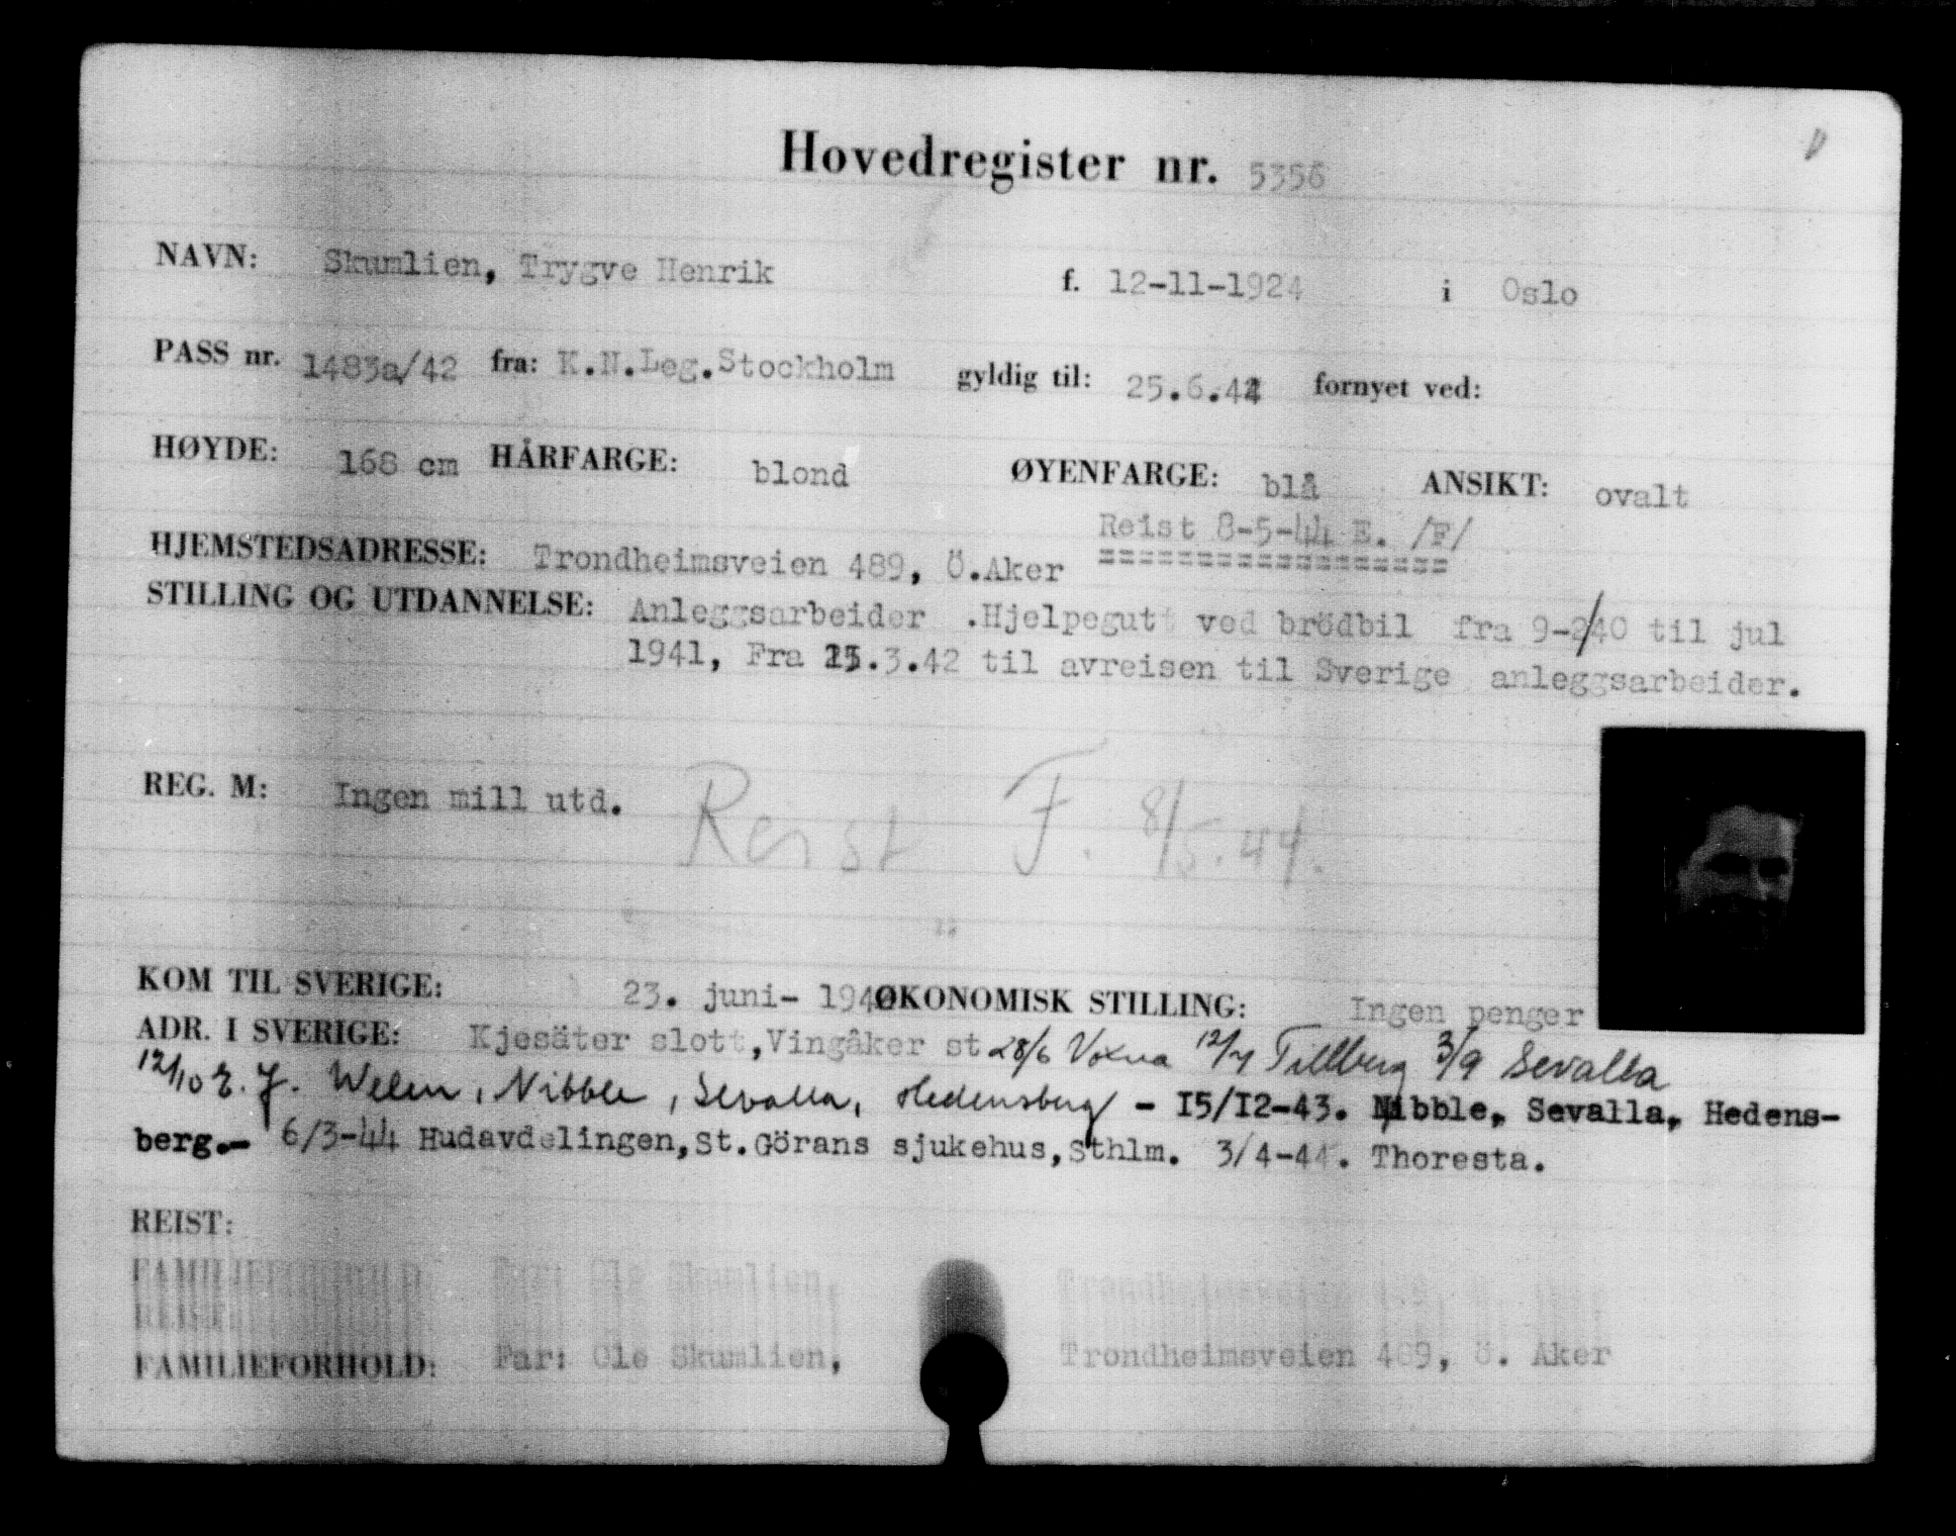 Hovedregister nr. 5356
NAVN: Skumlien, Trygve Henrik f. 12-11-1924 i Oslo
PASS nr. 1483a/42 fra: K.N.Leg.Stockholm gyldig til: 25.6.44 fornyet ved:
HØYDE: 168 cm HÅRFARGE: blond ØYENFARGE: blå ANSIKT: ovalt
Reist 8-5-44 E. /F/
HJEMSTEDSADRESSE: Trondheimsveien 489, Ö.Aker
STILLING OG UTDANNELSE: Anleggsarbeider .Hjelpegutt ved brödbil fra 9-2/40 til jul
1941, Fra 15.3.42 til avreisen til Sverige anleggsarbeider.
REG. M: Ingen mill utd.
Reist F. 8/5.44.
KOM TIL SVERIGE: 23. juni- 194 ØKONOMISK STILLING: Ingen penger
ADR. I SVERIGE: Kjesäter slott,Vingåker st 28/6 Voxna 12/7 Tillberg 3/9 Sevalla
12/10 E. J. Welen, Nibble, Sevalla, Hedensberg - 15/12-43. Nibble, Sevalla, Hedens-
berg.- 6/3-44 Hudavdelingen,St.Görans sjukehus,Sthlm. 3/4-44. Thoresta.
REIST:
FAMILIEFORHOLD: Far: Ole Skumlien, Trondheimsveien 489, Ö. Aker
REIST:
FAMILIEFORHOLD: Far: Ole Skumlien, Trondheimsveien 489, Ö. Aker